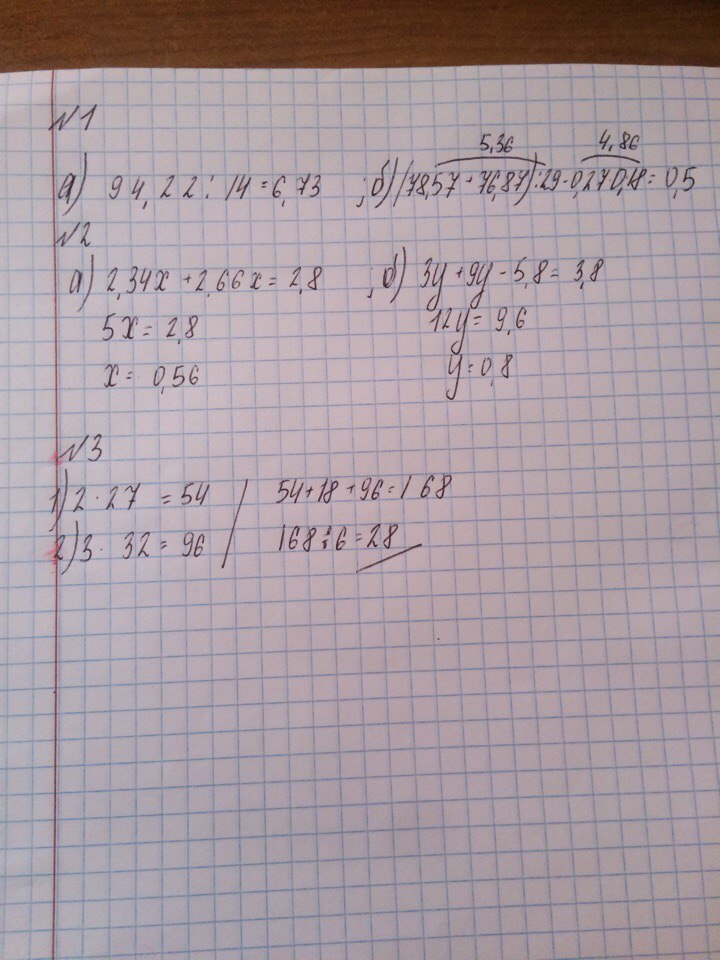 №1
5,36 4,86
а) 94,22 : 14 = 6,73 ; б) (78,57 + 76,87) : 29 - 0,27 0,18 = 0,5
№2
а) 2,34x + 2,66x = 2,8 ; б) 3y + 9y - 5,8 = 3,8
5x = 2,8 12y = 9,6
x = 0,56 y = 0,8
№3
1) 2 · 27 = 54 / 54 + 18 + 96 = 168
2) 3 · 32 = 96 168 : 6 = 28